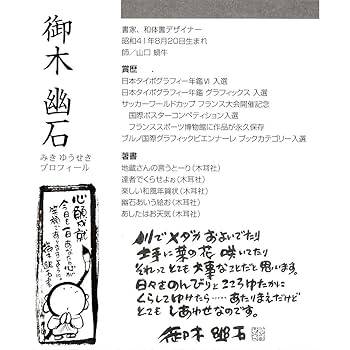 御木幽石
みき ゆうせき
プロフィール
書家、和体書デザイナー
昭和41年8月20日生まれ
師/山口 蝸牛
賞歴
日本タイポグラフィー年鑑Ⅵ 入選
日本タイポグラフィー年鑑 グラフィックス 入選
サッカーワールドカップ フランス大会開催記念
国際ポスターコンペティション入選
フランススポーツ博物館に作品が永久保存
ブルノ国際グラフィックビエンナーレ ブックカテゴリー入選
著書
地蔵さんの言うとーり(木耳社)
達者でくらせよぉ(木耳社)
楽しい和風年賀状(木耳社)
幽石あいう絵お(木耳社)
あしたはお天気(木耳社)
心願成就
今日も一日
川でメダカ およいでたり
土手に菜の花 咲いてたり
それってとても大事なことだと思います。
日々をのんびりと こころゆたかに
くらしてゆけたら……あたりまえだけど
とても しあわせなのです。
御木幽石